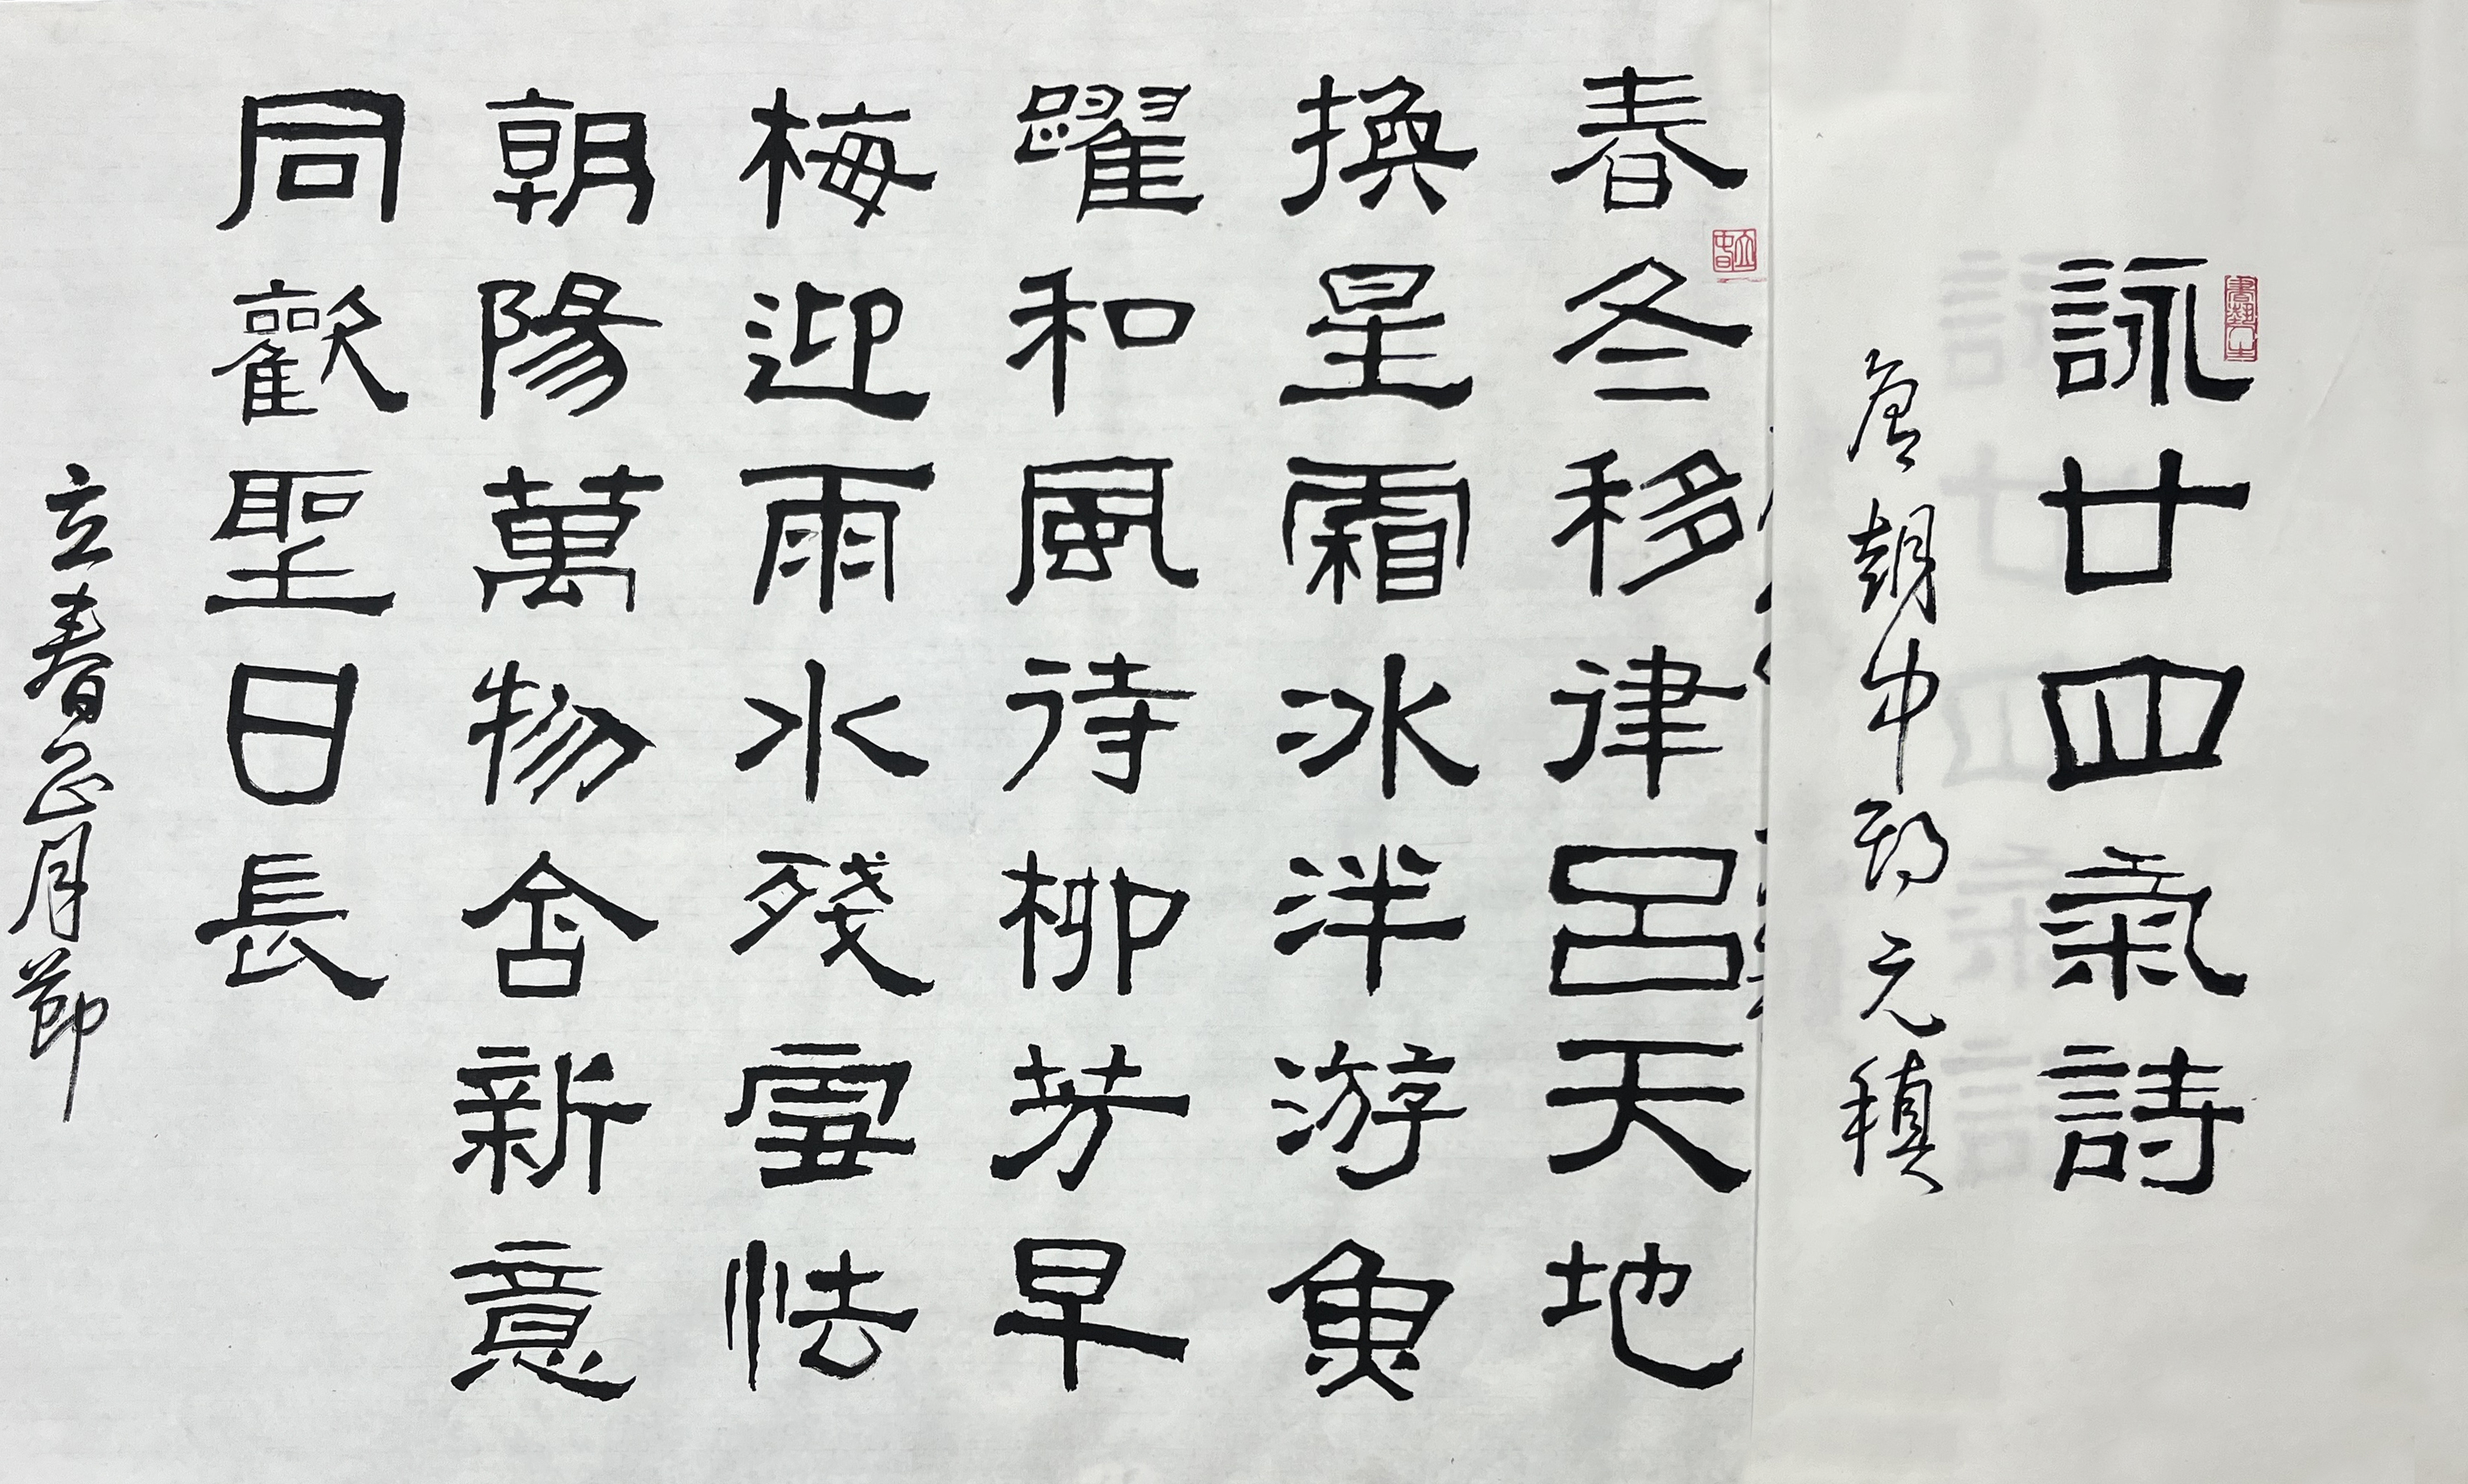 詠廿四氣詩
唐朝中期元稹
立春
春冬移律呂天地
換星霜冰泮游魚
躍和風待柳芳早
梅迎雨水殘雪怯
朝陽萬物含新意
同歡聖日長
立春正月節